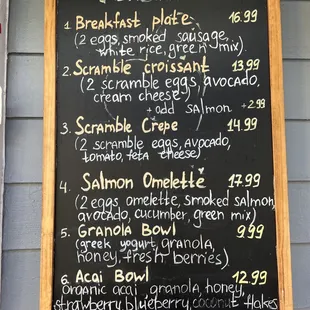 1 Breakfast plate 16.99
(2 eggs, smoked sausage,
white rice, green mix).
2. Scramble croissant 13,99
(2 scramble eggs, avocado,
cream cheese)
+ add salmon +2.99
3. Scramble Crepe 14.99
(2 scramble eggs, avocado,
tomato, feta cheese).
4. Salmon Omelette 17.99
(2 eggs omelette, smoked salmon,
avocado, cucumber, green mix)
5. Granola Bowl 9,99
(greek yogurt, granola,
honey, fresh berries)
6. Acai Bowl 12.99
organic acai granola, honey,
strawberry, blueberry, coconut flakes